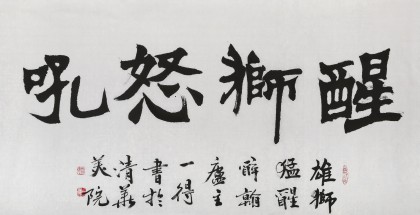 醒獅怒吼
雄獅
猛醒
翰
廬主
一得
書於
清華
美院